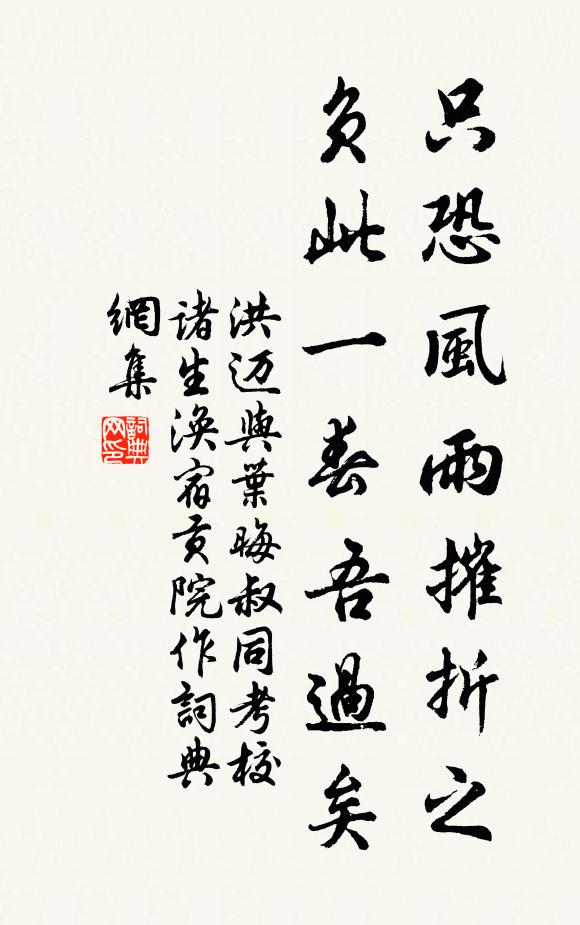 只恐風雨摧折之
負此一春吾過矣
洪迈與葉晦叔同考校
諸生渙宿貢院作詞典
網集
詞典
网印